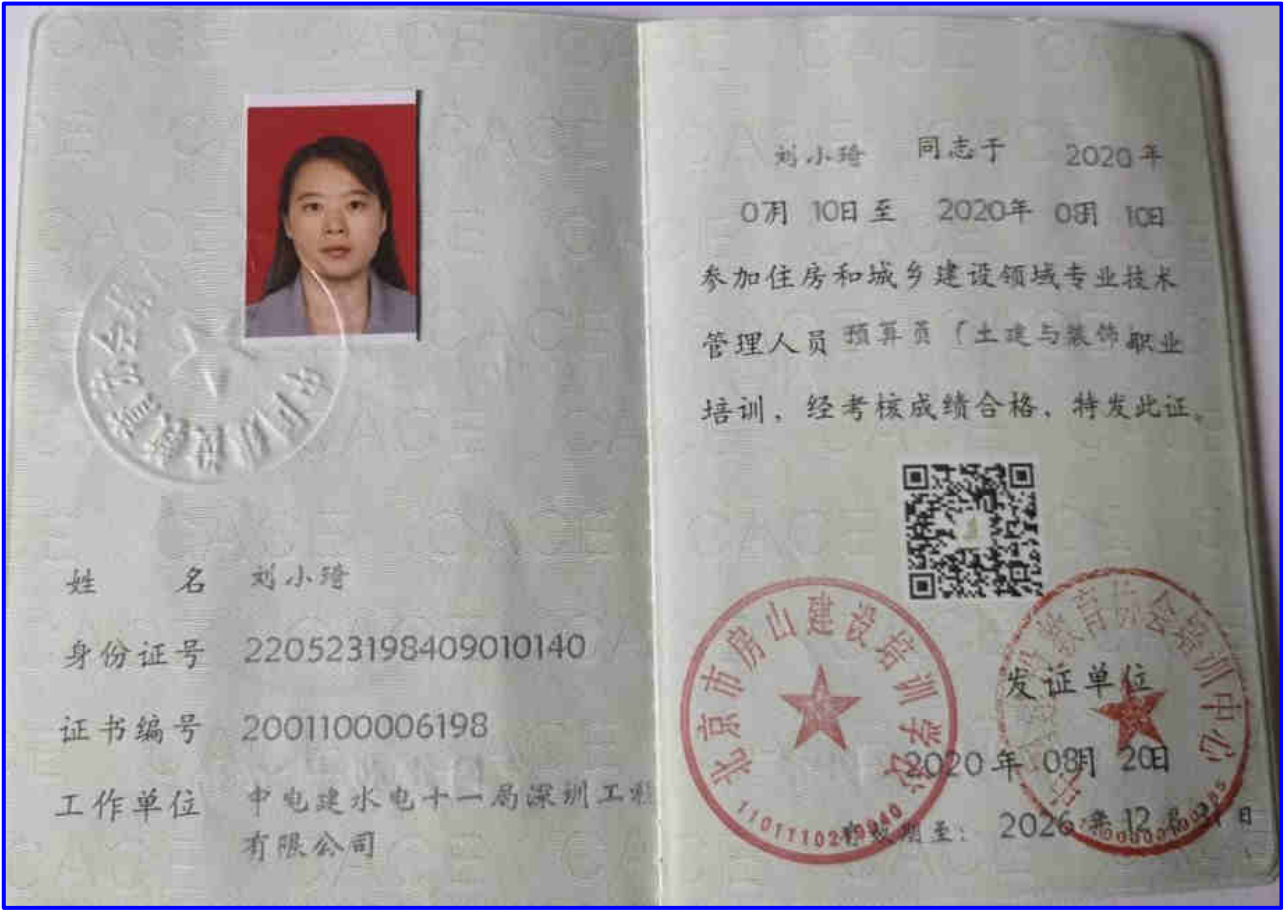 姓 名 刘小琦
身份证号 220523198409010140
证书编号 2001100006198
工作单位 中电建水电十一局深圳工程
有限公司
刘小琦 同志于 2020年
07月 10日至 2020年 08月 10日
参加住房和城乡建设领域专业技术
管理人员 预算员（土建与装饰职业
培训，经考核成绩合格，特发此证。
北京市房山建设培训学校
教育协会培训中心
发证单位
2020年 08月 20日
有效期至： 2026年12月31日